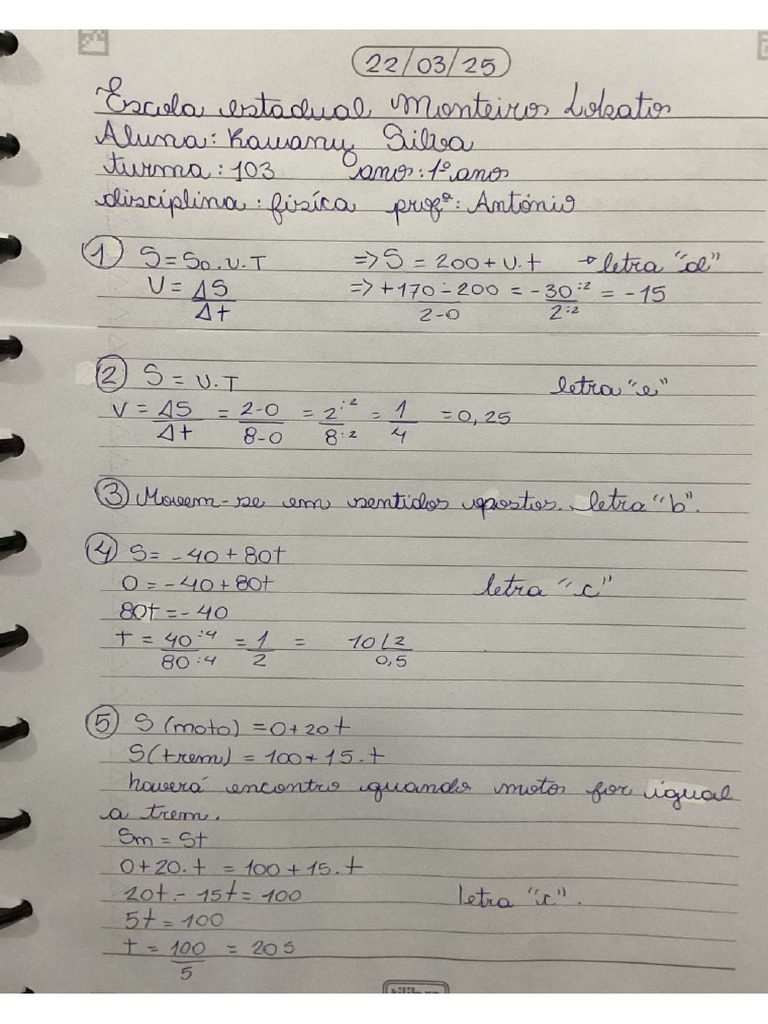 22/03/25
Escola estadual Monteiro Lobato
Aluna: Kawany Silva
turma: 103 ano: 1º ano
disciplina: física profº: Antônio
① S = So.v.T => S = 200 + v.t → letra "d"
V = ΔS/Δt => +170-200/2-0 = -30:2/2:2 = -15
② S = v.T letra "e"
V = ΔS/Δt = 2-0/8-0 = 2:2/8:2 = 1/4 = 0,25
③ Movem-se em sentidos opostos. letra "b".
④ S = -40 + 80t
0 = -40 + 80t letra "c"
80t = -40
t = 40:4/80:4 = 1/2 = 10 2 0,5
⑤ S (moto) = 0 + 20t
S (trem) = 100 + 15.t
haverá encontro quando moto for igual
a trem.
Sm = St
0 + 20.t = 100 + 15.t
20t - 15t = 100 letra "c".
5t = 100
t = 100/5 = 20s